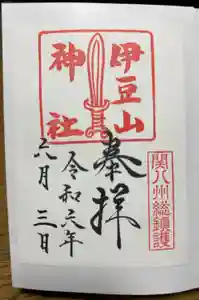 伊豆山
神社
奉拝
関八州総鎮護
令和六年
六月三日